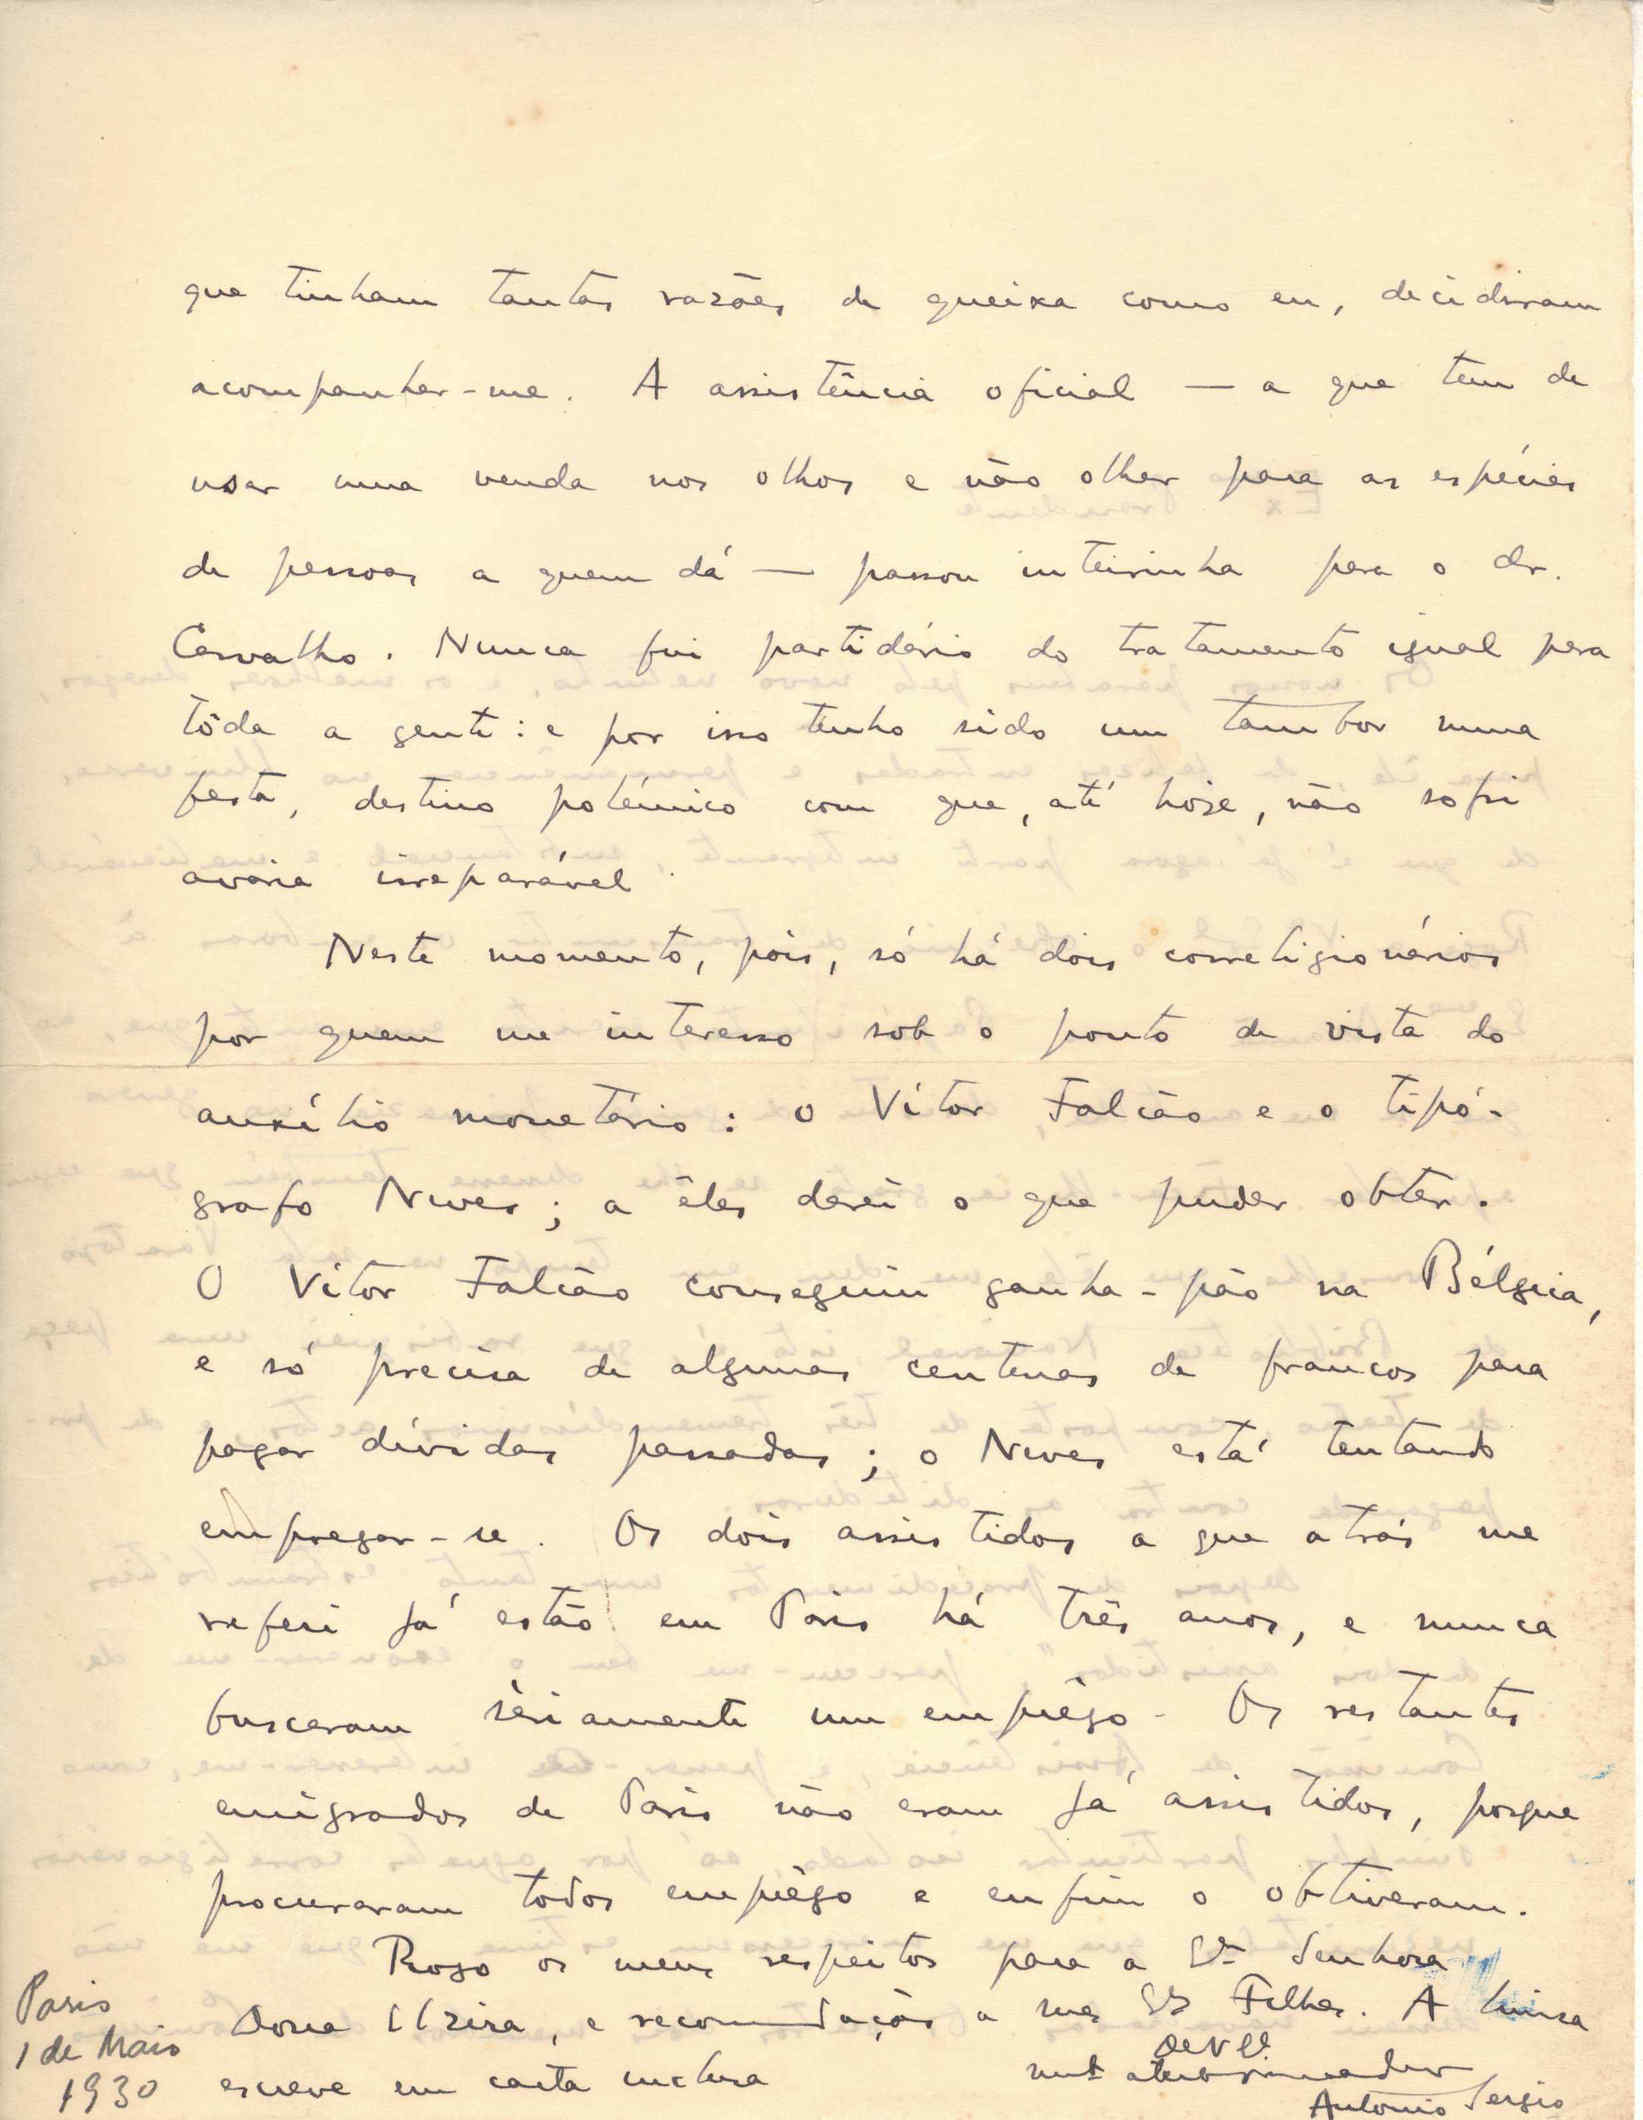 que tinham tantas razões de queixa como eu, decidiram
acompanhar-me. A assistência oficial — a que tem de
usar uma venda nos olhos e não olhar para as espécies
de pessoas a quem dá — passou inteirinha para o dr.
Carvalho. Nunca fui partidário do tratamento igual para
tôda a gente: e por isso tenho sido um tambor numa
festa, destino polémico com que, até hoje, não sofri
avaria irreparável.
Neste momento, pois, só há dois correligionários
por quem me interesso sob o ponto de vista do
auxílio monetário: o Vítor Falcão e o tipó-
grafo Neves; a êles darei o que puder obter.
O Vítor Falcão conseguiu ganha-pão na Bélgica,
e só precisa de algumas centenas de francos para
pagar dívidas passadas; o Neves está tentando
empregar-se. Os dois assistidos a que atrás me
referi já estão em Paris há três anos, e nunca
buscaram sèriamente um emprêgo. Os restantes
emigrados de Paris não eram já assistidos, porque
procuraram todos emprêgo e enfim o obtiveram.
Rogo os meus respeitos para a Srª Senhora
Dona Elzira, e recomendações a suas Sras Filhas. A Luisa
escreve em carta inclusa
De V. Ex
Antonio Sergio
Paris
1 de Maio
1930